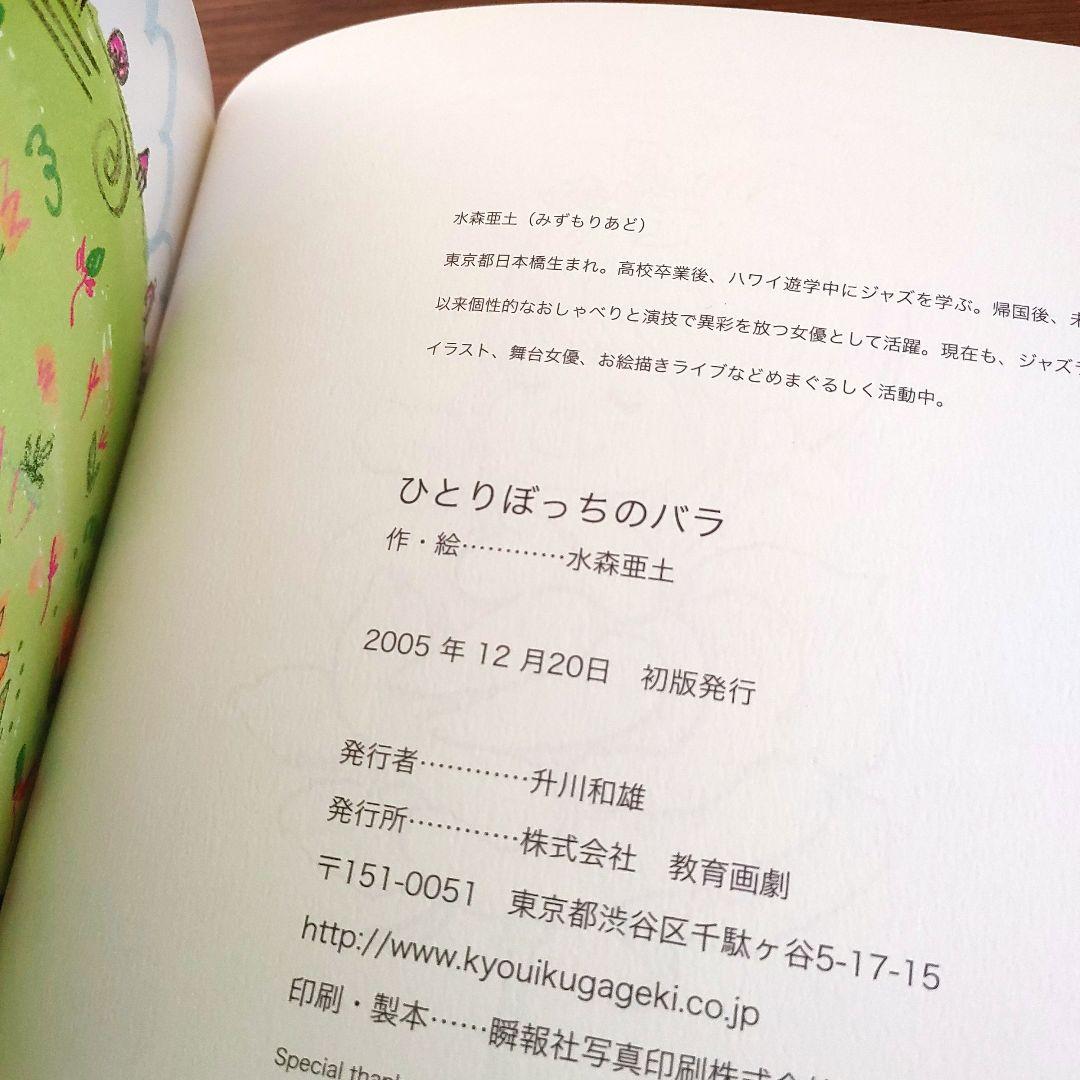 水森亜土（みずもりあど）
東京都日本橋生まれ。高校卒業後、ハワイ遊学中にジャズを学ぶ。帰国後、
以来個性的なおしゃべりと演技で異彩を放つ女優として活躍。現在も、ジャズ
イラスト、舞台女優、お絵描きライブなどめまぐるしく活動中。
ひとりぼっちのバラ
作・絵…………水森亜土
2005 年 12 月20日　初版発行
発行者…………升川和雄
発行所…………株式会社　教育画劇
〒151-0051　東京都渋谷区千駄ヶ谷5-17-15
http://www.kyouikugageki.co.jp
印刷・製本……瞬報社写真印刷株式
Special